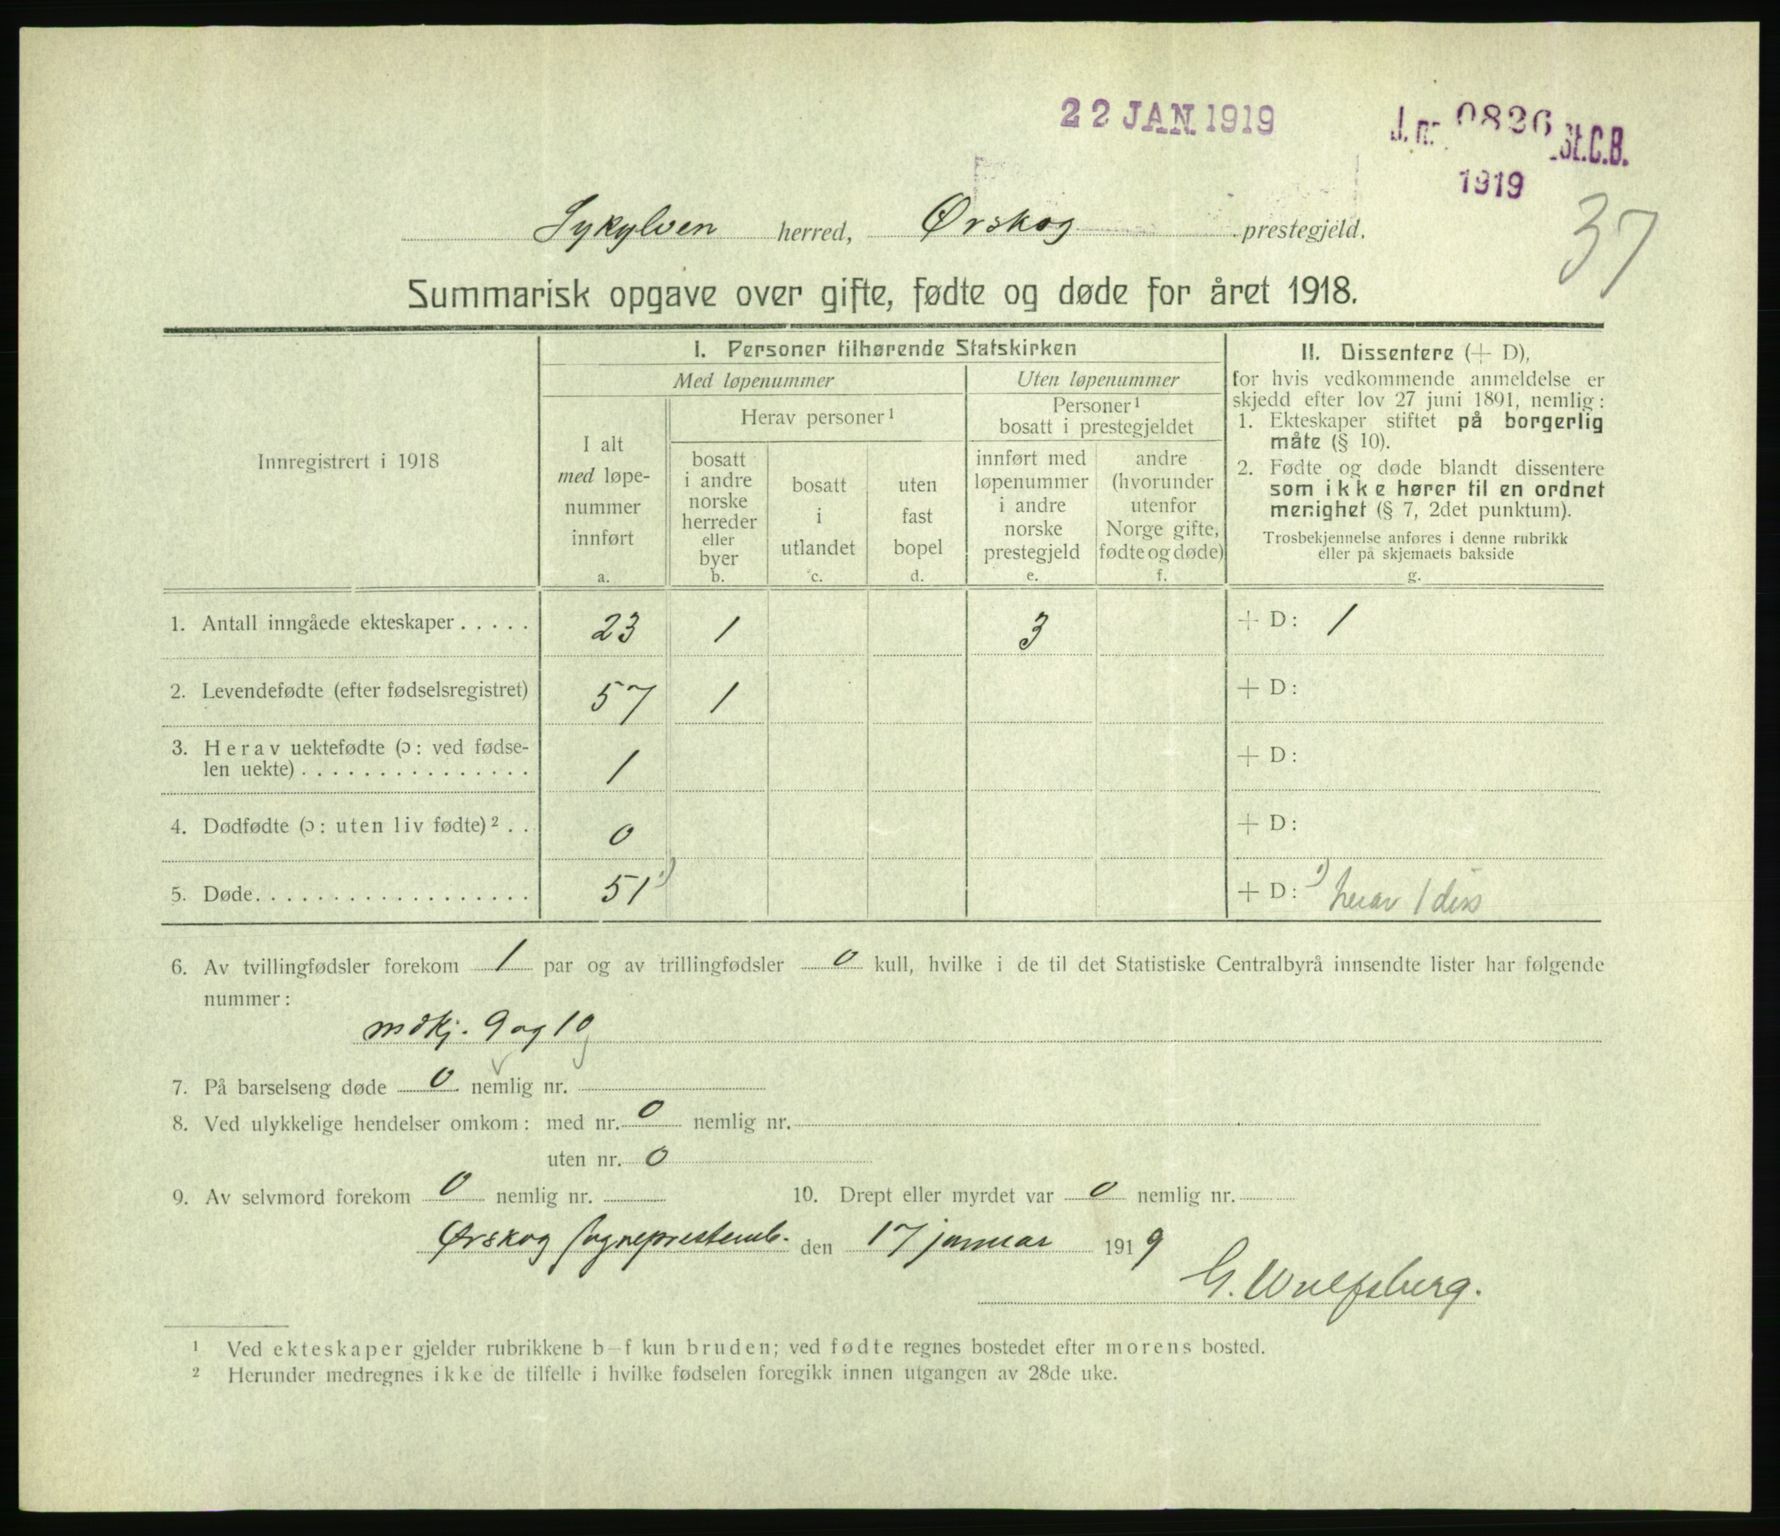 22 JAN. 1919
J. nr. 0826 St.C.B.
1919
37
Sykylven herred, Ørskog prestegjeld.
Summarisk opgave over gifte, fødte og døde for året 1918.
Innregistrert i 1918
I. Personer tilhørende Statskirken
Med løpenummer
Uten løpenummer
I alt
med løpe-
nummer
innført
a.
Herav personer ¹
bosatt
i andre
norske
herreder
eller
byer
b.
bosatt
i
utlandet
c.
uten
fast
bopel
d.
Personer ¹
bosatt i prestegjeldet
innført med
løpenummer
i andre
norske
prestegjeld
e.
andre
(hvorunder
utenfor
Norge gifte,
fødte og døde)
f.
II. Dissentere (+ D),
for hvis vedkommende anmeldelse er
skjedd efter lov 27 juni 1891, nemlig:
1. Ekteskaper stiftet på borgerlig
måte (§ 10).
2. Fødte og døde blandt dissentere
som ikke hører til en ordnet
menighet (§ 7, 2det punktum).
Trosbekjennelse anføres i denne rubrikk
eller på skjemaets bakside
g.
1. Antall inngåede ekteskaper..... 23 1 3 + D: 1
2. Levendefødte (efter fødselsregistret) 57 1 + D:
3. Herav uektefødte (ɔ: ved fødse-
len uekte)............... 1 + D:
4. Dødfødte (ɔ: uten liv fødte) ² .. 0 + D:
5. Døde.................. 51 ¹) + D: ¹) herav 1 diss
6. Av tvillingfødsler forekom 1 par og av trillingfødsler 0 kull, hvilke i de til det Statistiske Centralbyrå innsendte lister har følgende
nummer:
mdkj. 9 og 10
7. På barselseng døde 0 nemlig nr.
8. Ved ulykkelige hendelser omkom: med nr. 0 nemlig nr.
uten nr. 0
9. Av selvmord forekom 0 nemlig nr. 10. Drept eller myrdet var 0 nemlig nr.
Ørskog sogneprestemb. den 17 januar 1919
G. Wulfsberg.
¹ Ved ekteskaper gjelder rubrikkene b–f kun bruden; ved fødte regnes bostedet efter morens bosted.
² Herunder medregnes ikke de tilfelle i hvilke fødselen foregikk innen utgangen av 28de uke.